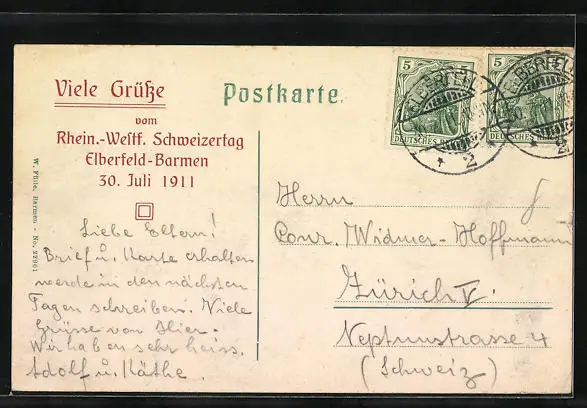 Viele Grüße
vom
Rhein.-Westf. Schweizertag
Elberfeld-Barmen
30. Juli 1911
Postkarte.
5 5
DEUTSCHES REICH
ELBERFELD
2
5
DEUTSCHES
ELBERFELD
2
W. Fülle, Barmen - No. 22961
Liebe Eltern!
Brief u. Karte erhalten
werde in den nächsten
Tagen schreiben. Viele
Grüsse von Hier.
Wir haben sehr heiss.
Adolf u. Käthe.
Herrn
Conr. Widmer-Hoffmann
Zürich V.
Neptunstrasse 4
(Schweiz)